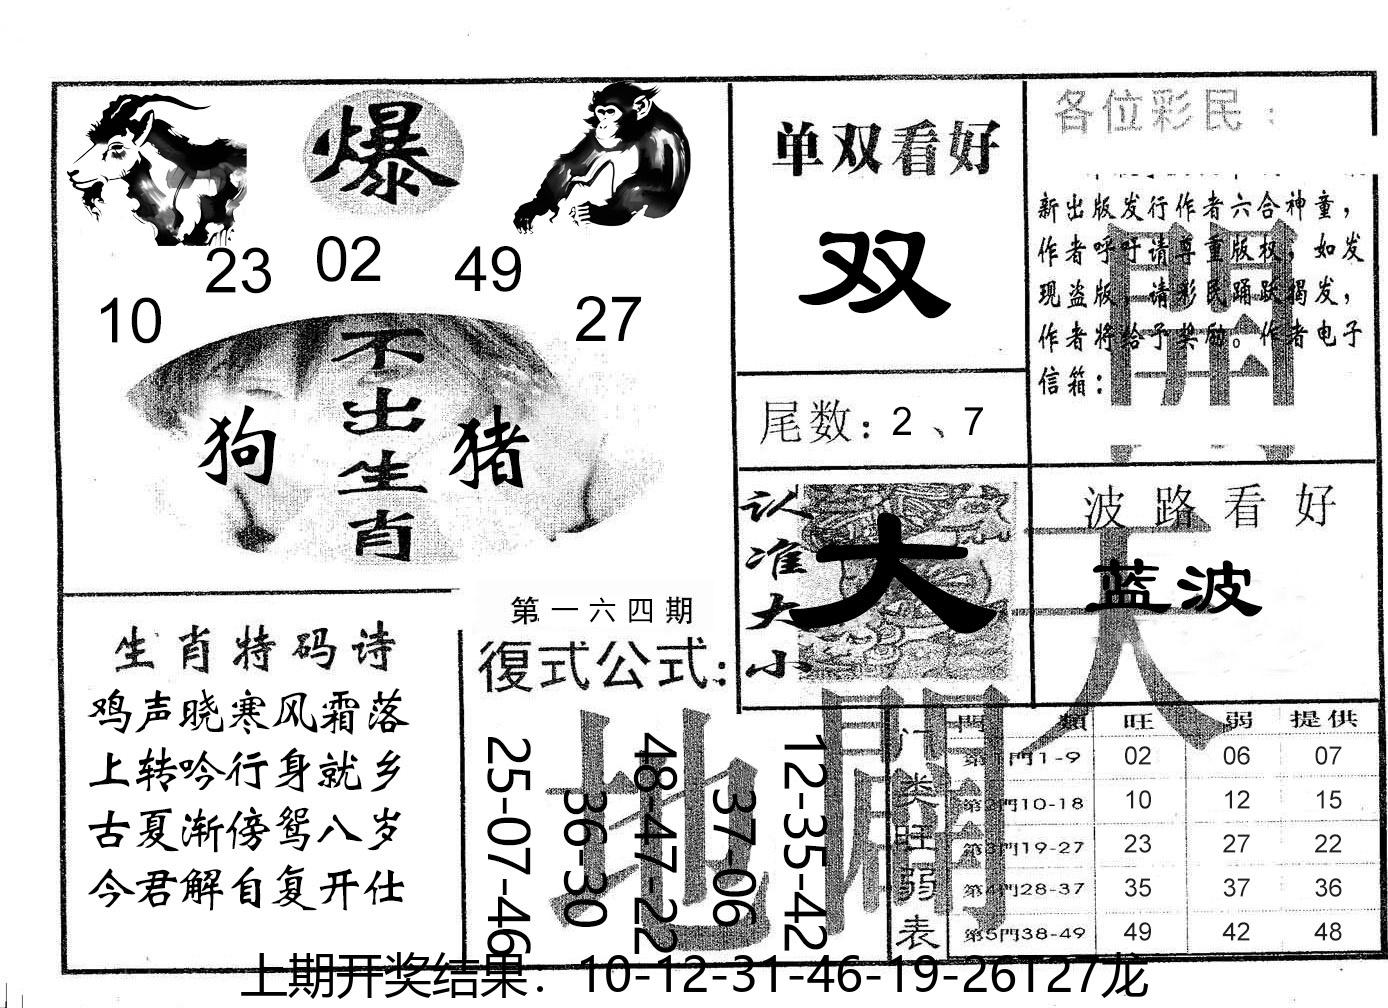 爆
23 02 49
10 27
不出生肖
狗 猪
单双看好
双
尾数：2、7
各位彩民：
新出版发行作者六合神童，
作者呼吁请尊重版权，如发
现盗版，请彩民踊跃揭发，
作者将给予奖励。作者电子
信箱：
開
认准大小
大
波路看好
蓝波
天
生肖特码诗
鸡声晓寒风霜落
上转吟行身就乡
古夏渐傍鸳八岁
今君解自复开仕
第一六四期
復式公式：
25-07-46
36-30
48-47-22
37-06
12-35-42
地
门类旺弱表
門 類 旺 弱 提供
第1門1-9 02 06 07
第2門10-18 10 12 15
第3門19-27 23 27 22
第4門28-37 35 37 36
第5門38-49 49 42 48
上期开奖结果：10-12-31-46-19-26T27龙